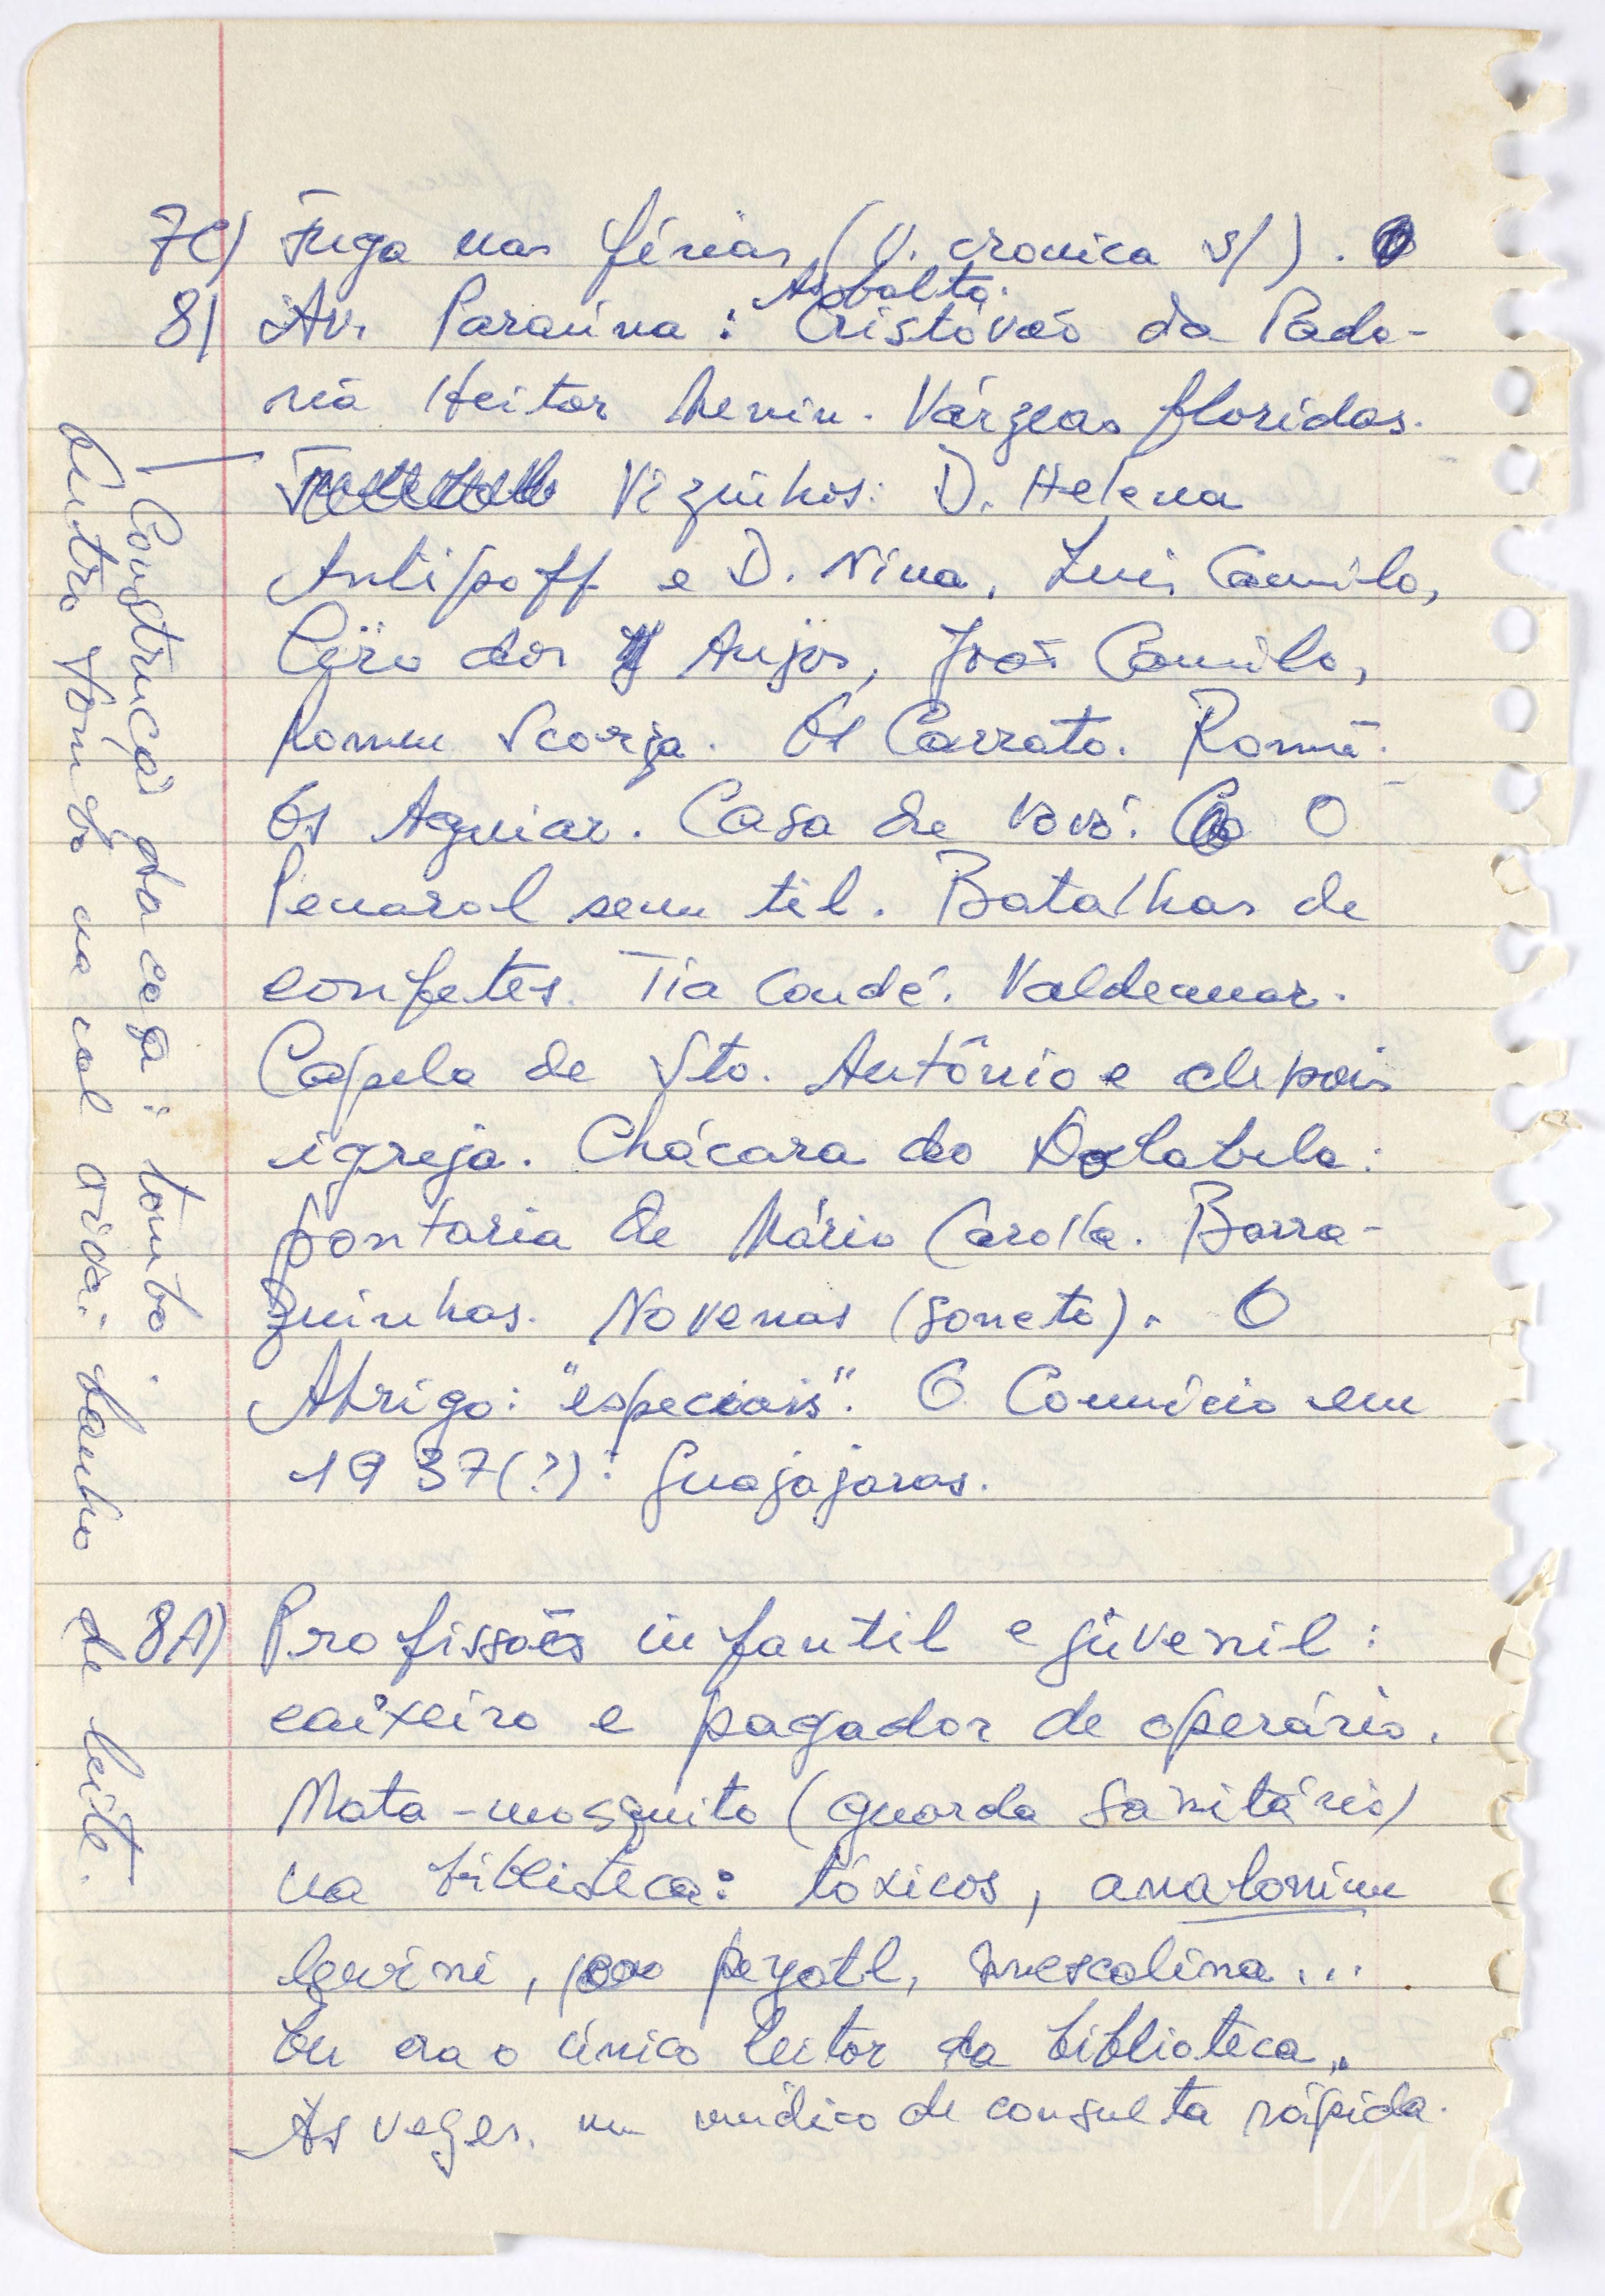 7C) Fuga nas férias (V. cronica s/).
Asfalto.
8) Av. Paraúna: Cristóvão da Pada-
ria Heitor Menin. Várzeas floridas.
Vizinhos: D. Helena
Antipoff e D. Nina, Luis Camilo,
Cyro dos Anjos, João Camilo,
Romeu Scorza. Os Carrato. Romã.
Os Aguiar. Casa de vovó. O
Penarol sem til. Batalhas de
confetes. Tia Condé. Valdemar.
Capela de Sto. Antônio e depois
igreja. Chácara do Dolabela:
pontaria de Mário Carolla. Barra-
quinhas. Novenas (soneto). O
Abrigo: "especiais". O Comício em
1937(?): Guajajaras.
8A) Profissões infantil e juvenil:
caixeiro e pagador de operário.
Mata-mosquito (guarda sanitário)
na biblioteca: tóxicos, analonium
lewini, peyotl, mescalina...
Eu era o único leitor da biblioteca.
Às vezes, um médico de consulta rápida.
Construção da casa: tombo.
Outro tombo na cal viva: banho de leite.
IMS